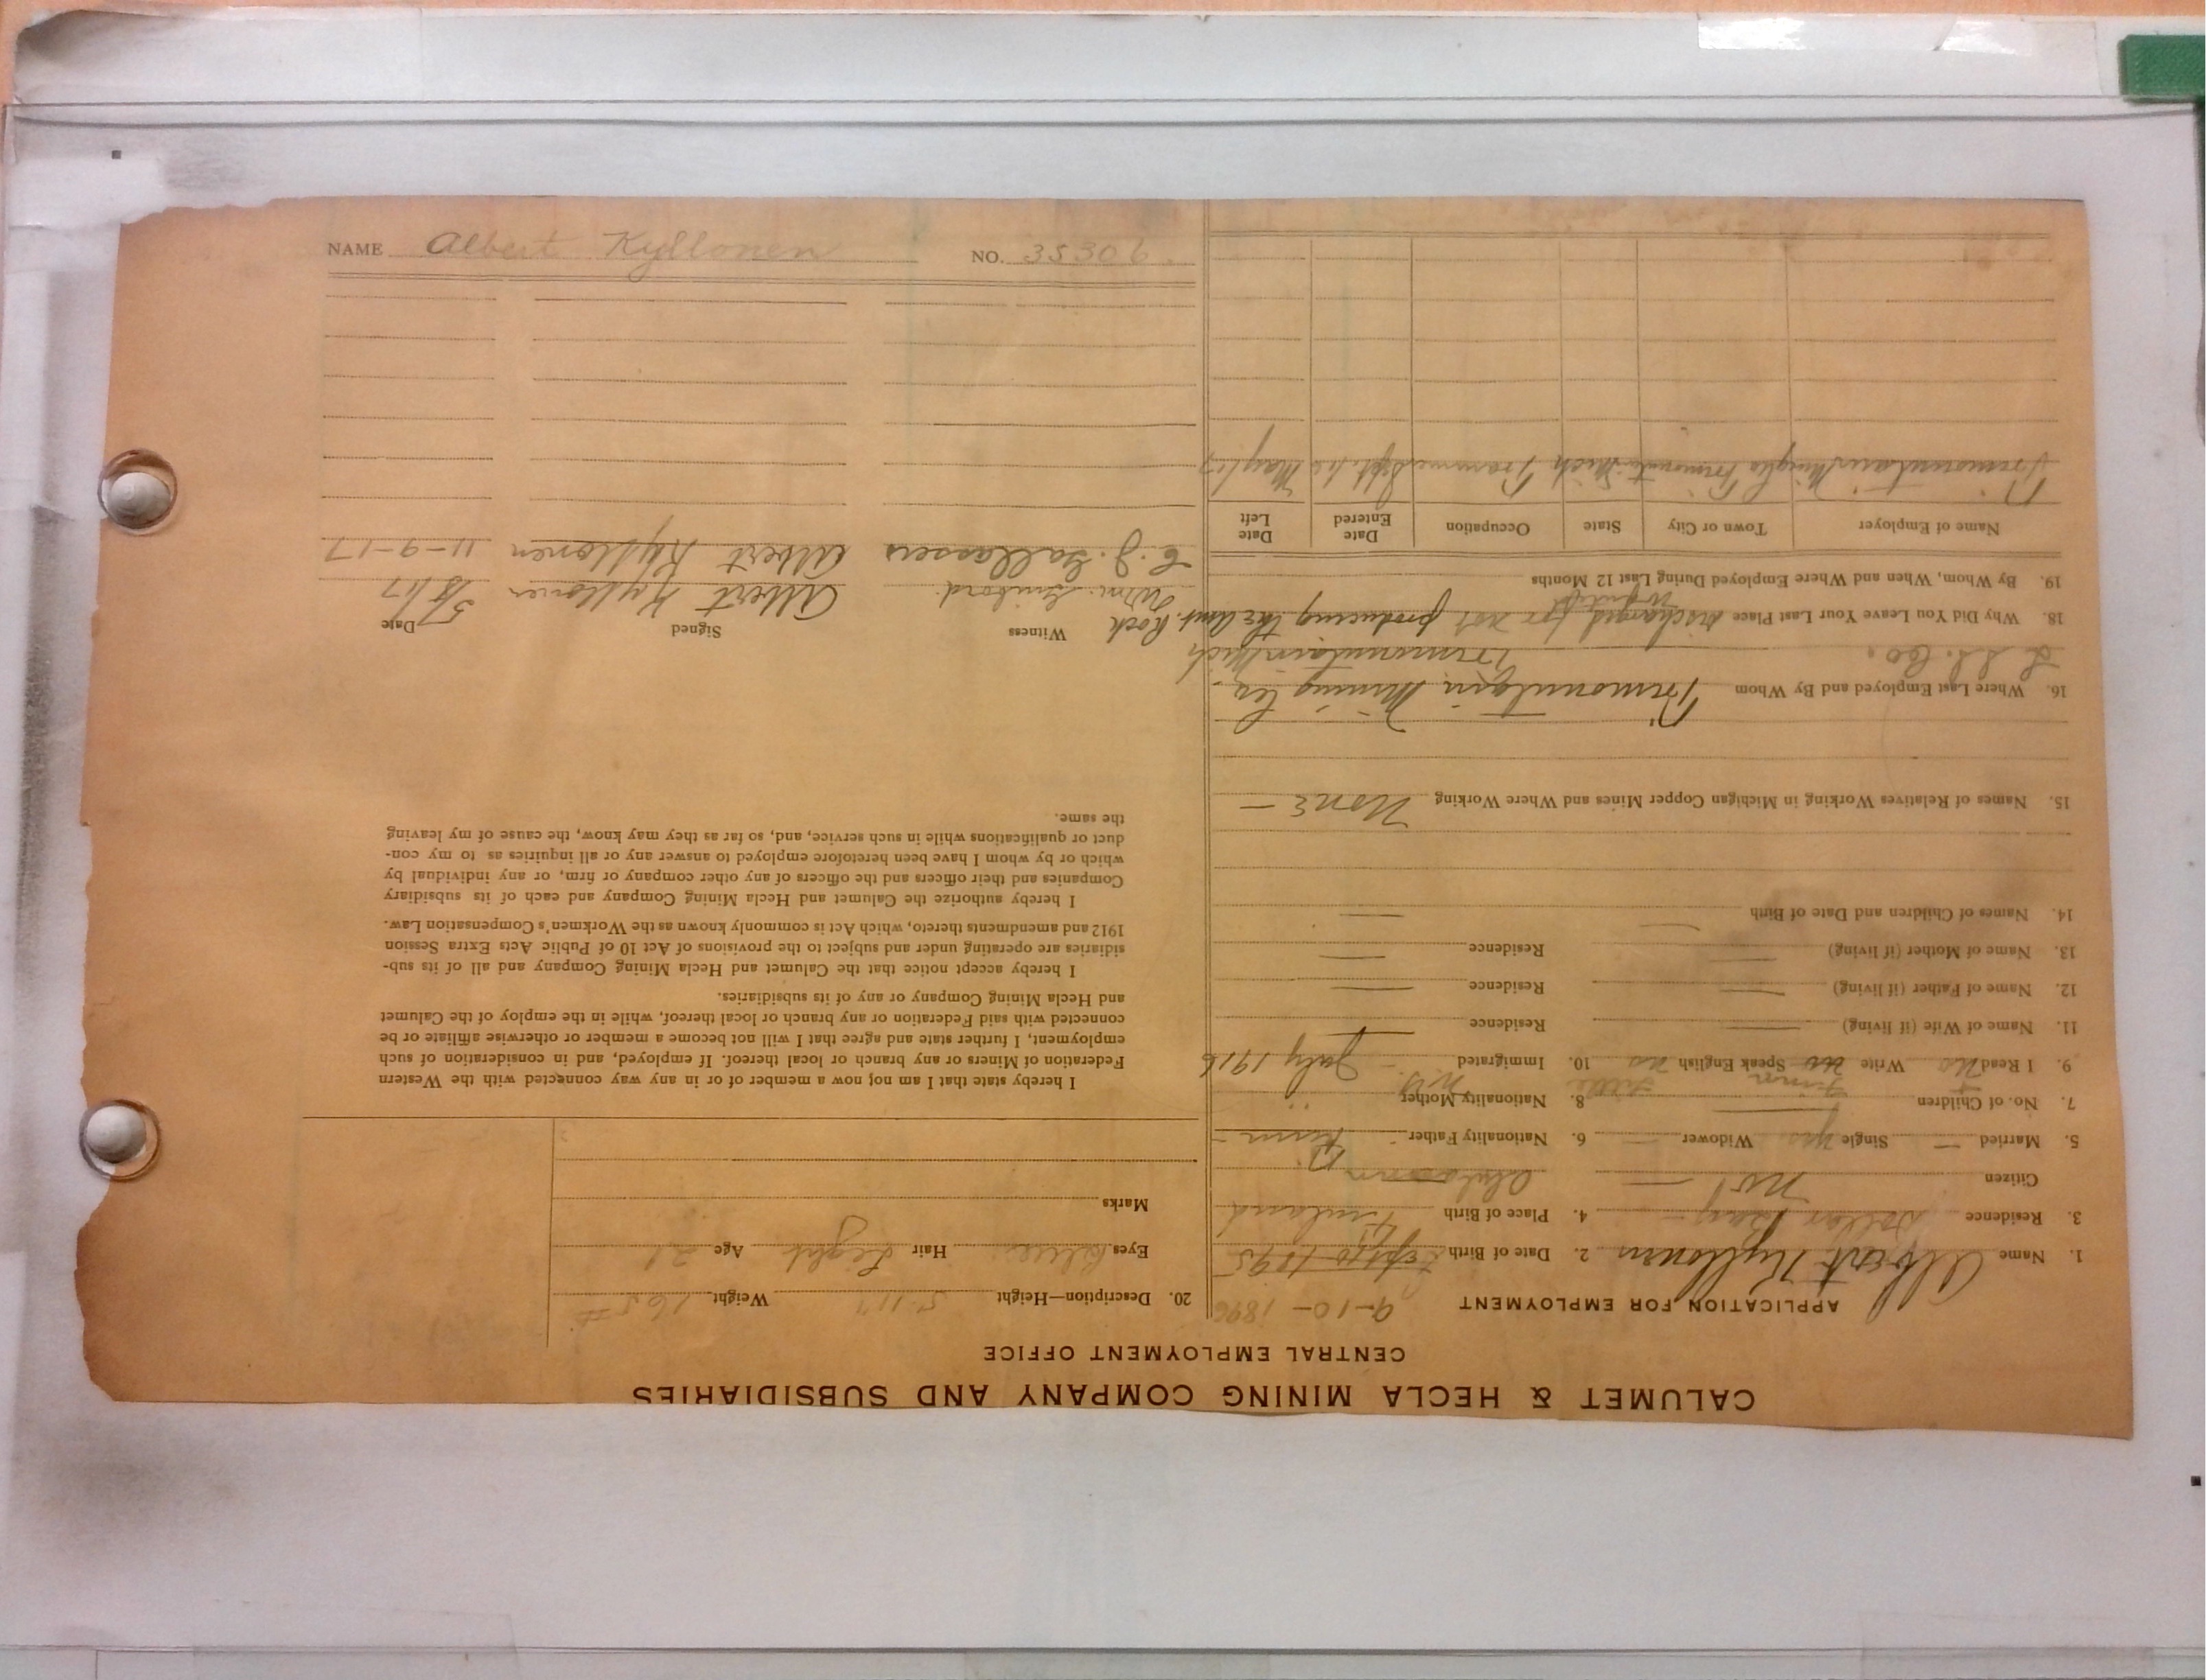 CALUMET & HECLA MINING COMPANY AND SUBSIDIARIES
CENTRAL EMPLOYMENT OFFICE
APPLICATION FOR EMPLOYMENT 9-10-1896
1. Name Albert Kyllonen 2. Date of Birth Sept 10 1895
3. Residence Dollar Bay 4. Place of Birth Finland
Citizen No
5. Married — Single Yes Widower — 6. Nationality Father Finn
7. No. of Children — 8. Nationality Mother
Finn
9. I Read No Write No Speak English No 10. Immigrated July 1916
11. Name of Wife (if living) — Residence —
12. Name of Father (if living) — Residence —
13. Name of Mother (if living) — Residence —
14. Names of Children and Date of Birth —
15. Names of Relatives Working in Michigan Copper Mines and Where Working None —
16. Where Last Employed and By Whom Trimountain Mining Co.
Trimountain Mich
18. Why Did You Leave Your Last Place Discharged for not producing the amt. Rock
19. By Whom, When and Where Employed During Last 12 Months
Name of Employer Town or City State Occupation Date Entered Date Left
Trimountain Mining Co Trimountain Mich Trammer Sept. 16 May 17
20. Description—Height 5'11" Weight 165#
Eyes Blue Hair Light Age 21
Marks
I hereby state that I am not now a member of or in any way connected with the Western
Federation of Miners or any branch or local thereof. If employed, and in consideration of such
employment, I further state and agree that I will not become a member or otherwise affiliate or be
connected with said Federation or any branch or local thereof, while in the employ of the Calumet
and Hecla Mining Company or any of its subsidiaries.
I hereby accept notice that the Calumet and Hecla Mining Company and all of its sub-
sidiaries are operating under and subject to the provisions of Act 10 of Public Acts Extra Session
1912 and amendments thereto, which Act is commonly known as the Workmen's Compensation Law.
I hereby authorize the Calumet and Hecla Mining Company and each of its subsidiary
Companies and their officers and the officers of any other company or firm, or any individual by
which or by whom I have been heretofore employed to answer any or all inquiries as to my con-
duct or qualifications while in such service, and, so far as they may know, the cause of my leaving
the same.
Witness Signed Date
Wm. Albert Kyllonen 5/8/17
E. J. Albert Kyllonen 11-9-17
NAME Albert Kyllonen NO. 35306.